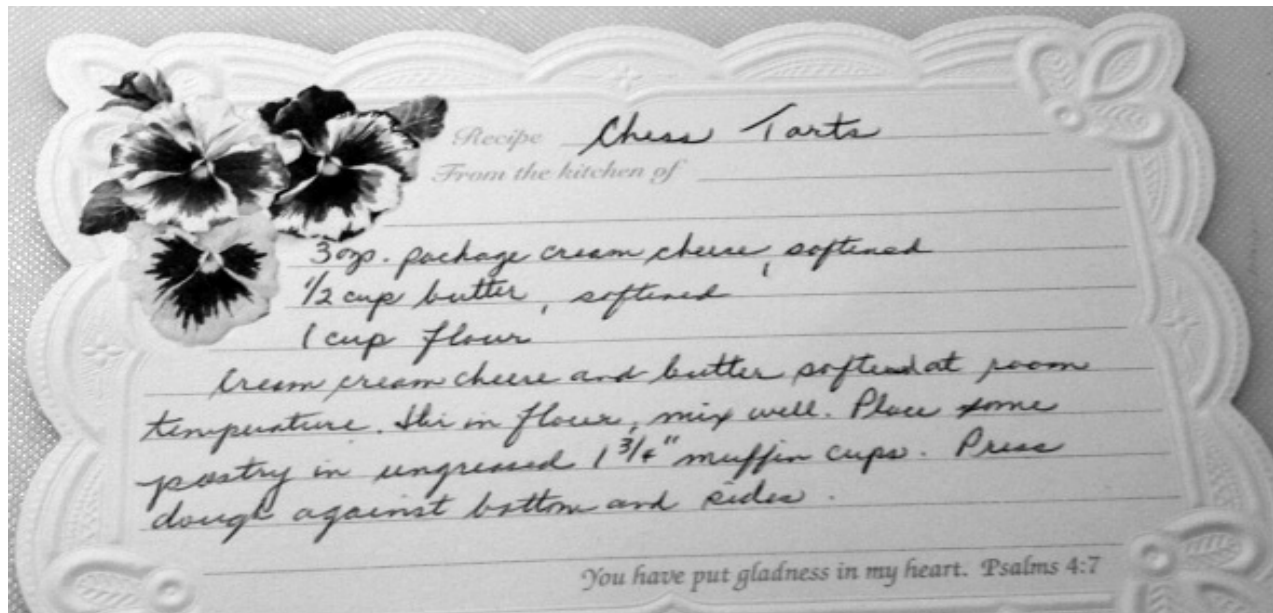 Recipe Chess Tarts
From the kitchen of
3 oz. package cream cheese, softened
1/2 cup butter, softened
1 cup flour
Cream cream cheese and butter softened at room
temperature. Stir in flour, mix well. Place some
pastry in ungreased 1 3/4" muffin cups. Press
dough against bottom and sides.
You have put gladness in my heart. Psalms 4:7